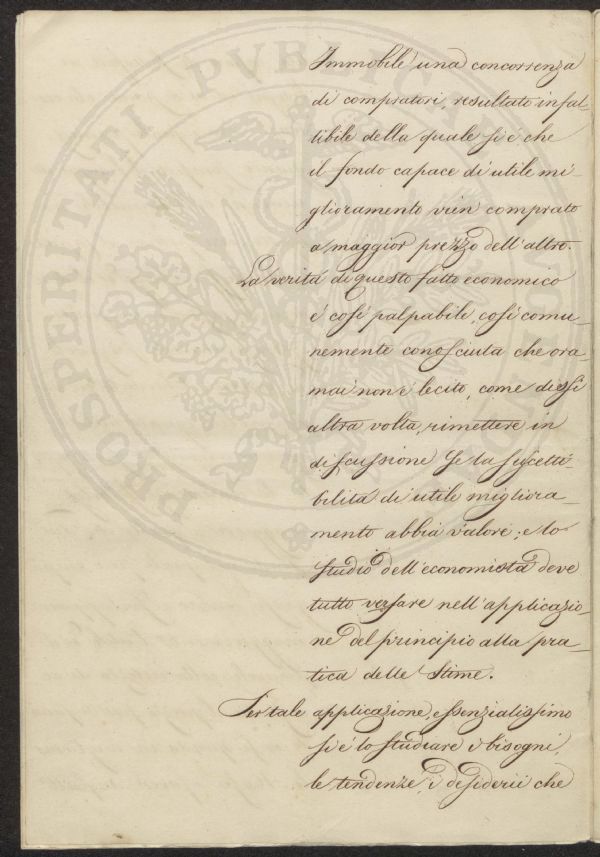 Immobile una concorrenza
di compratori, resultato infal-
libile della quale si è che
il fondo capace di utile mi-
glioramento vien comprato
a maggior prezzo dell'altro.
La verità di questo fatto economico
è così palpabile, così comu-
nemente conosciuta che ora-
mai non è lecito, come dissi
altra volta, rimettere in
discussione se la suscetti-
bilità di utile migliora-
mento abbia valore; e lo
studio dell'economista deve
tutto versare nell'applicazio-
ne del principio alla pra-
tica delle Stime.
Per tale applicazione, essenzialissimo
si è lo studiare i bisogni,
le tendenze, i desiderii che
PROSPERITATI PVBLICAE